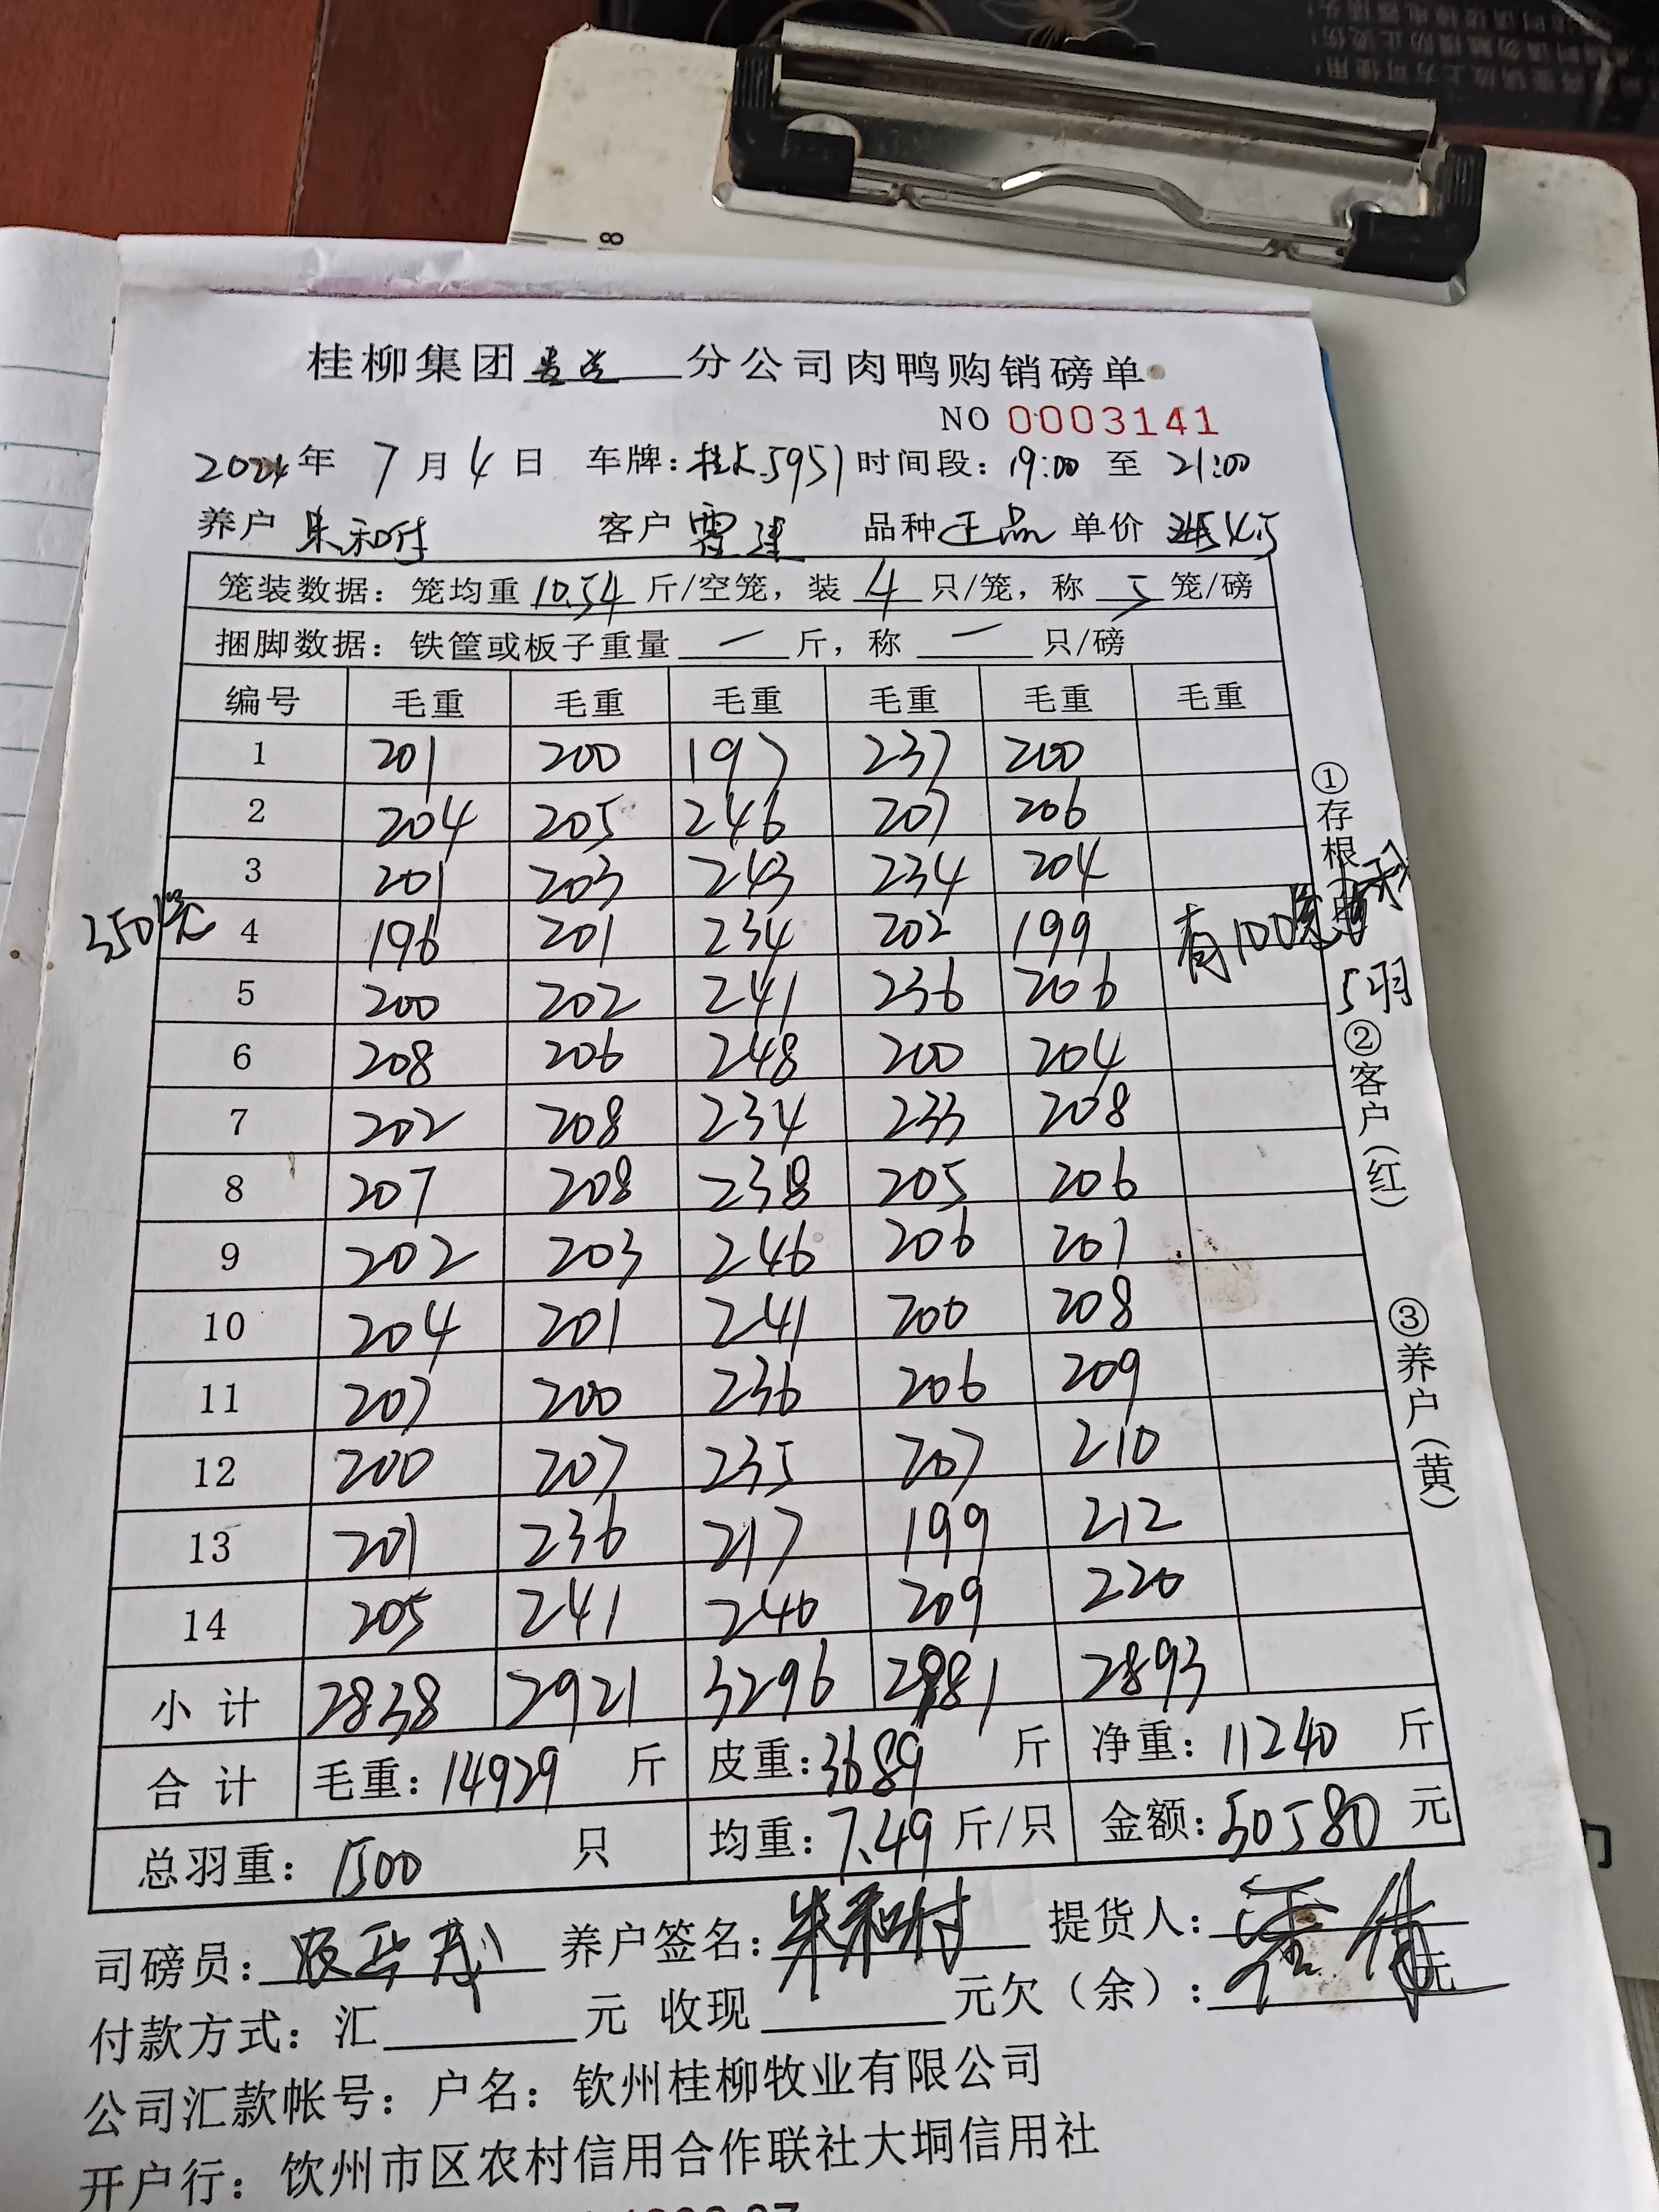 桂柳集团 分公司肉鸭购销磅单
NO 0003141
2024年 7月4日 车牌:桂A5951 时间段:19:00 至 21:00
养户 朱和付 客户 雷建 品种 正品 单价 4.5
笼装数据:笼均重 10.54 斤/空笼,装 4 只/笼,称 5 笼/磅
捆脚数据:铁筐或板子重量 — 斤,称 — 只/磅
编号 毛重 毛重 毛重 毛重 毛重 毛重
1 201 200 197 237 200
2 204 205 246 207 206
3 201 203 243 234 204
350笼 4 196 201 234 202 199 有100笼
5 200 202 241 236 206 5羽
6 208 206 248 200 204
7 202 208 234 233 208
8 207 208 238 205 206
9 202 203 246 206 201
10 204 201 241 200 208
11 207 200 236 206 209
12 200 207 235 207 210
13 201 236 217 199 212
14 205 241 240 209 220
小计 2838 2921 3296 2981 2893
合计 毛重:14929 斤 皮重:3689 斤 净重:11240 斤
总羽重:1500 只 均重:7.49 斤/只 金额:50580 元
司磅员: 养户签名:朱和付 提货人:
付款方式:汇 元 收现 元欠(余): 元
公司汇款帐号:户名:钦州桂柳牧业有限公司
开户行:钦州市区农村信用合作联社大垌信用社
①存根
②客户(红)
③养户(黄)